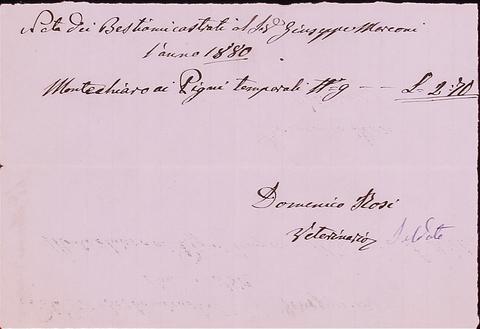 Nota dei Bestiami castrati al Sig. Giuseppe Marconi
l'anno 1880
Montechiaro ai Pigni temporali N° 9 — — L. 2:70
Domenico Rosi
Veterinario Saldato